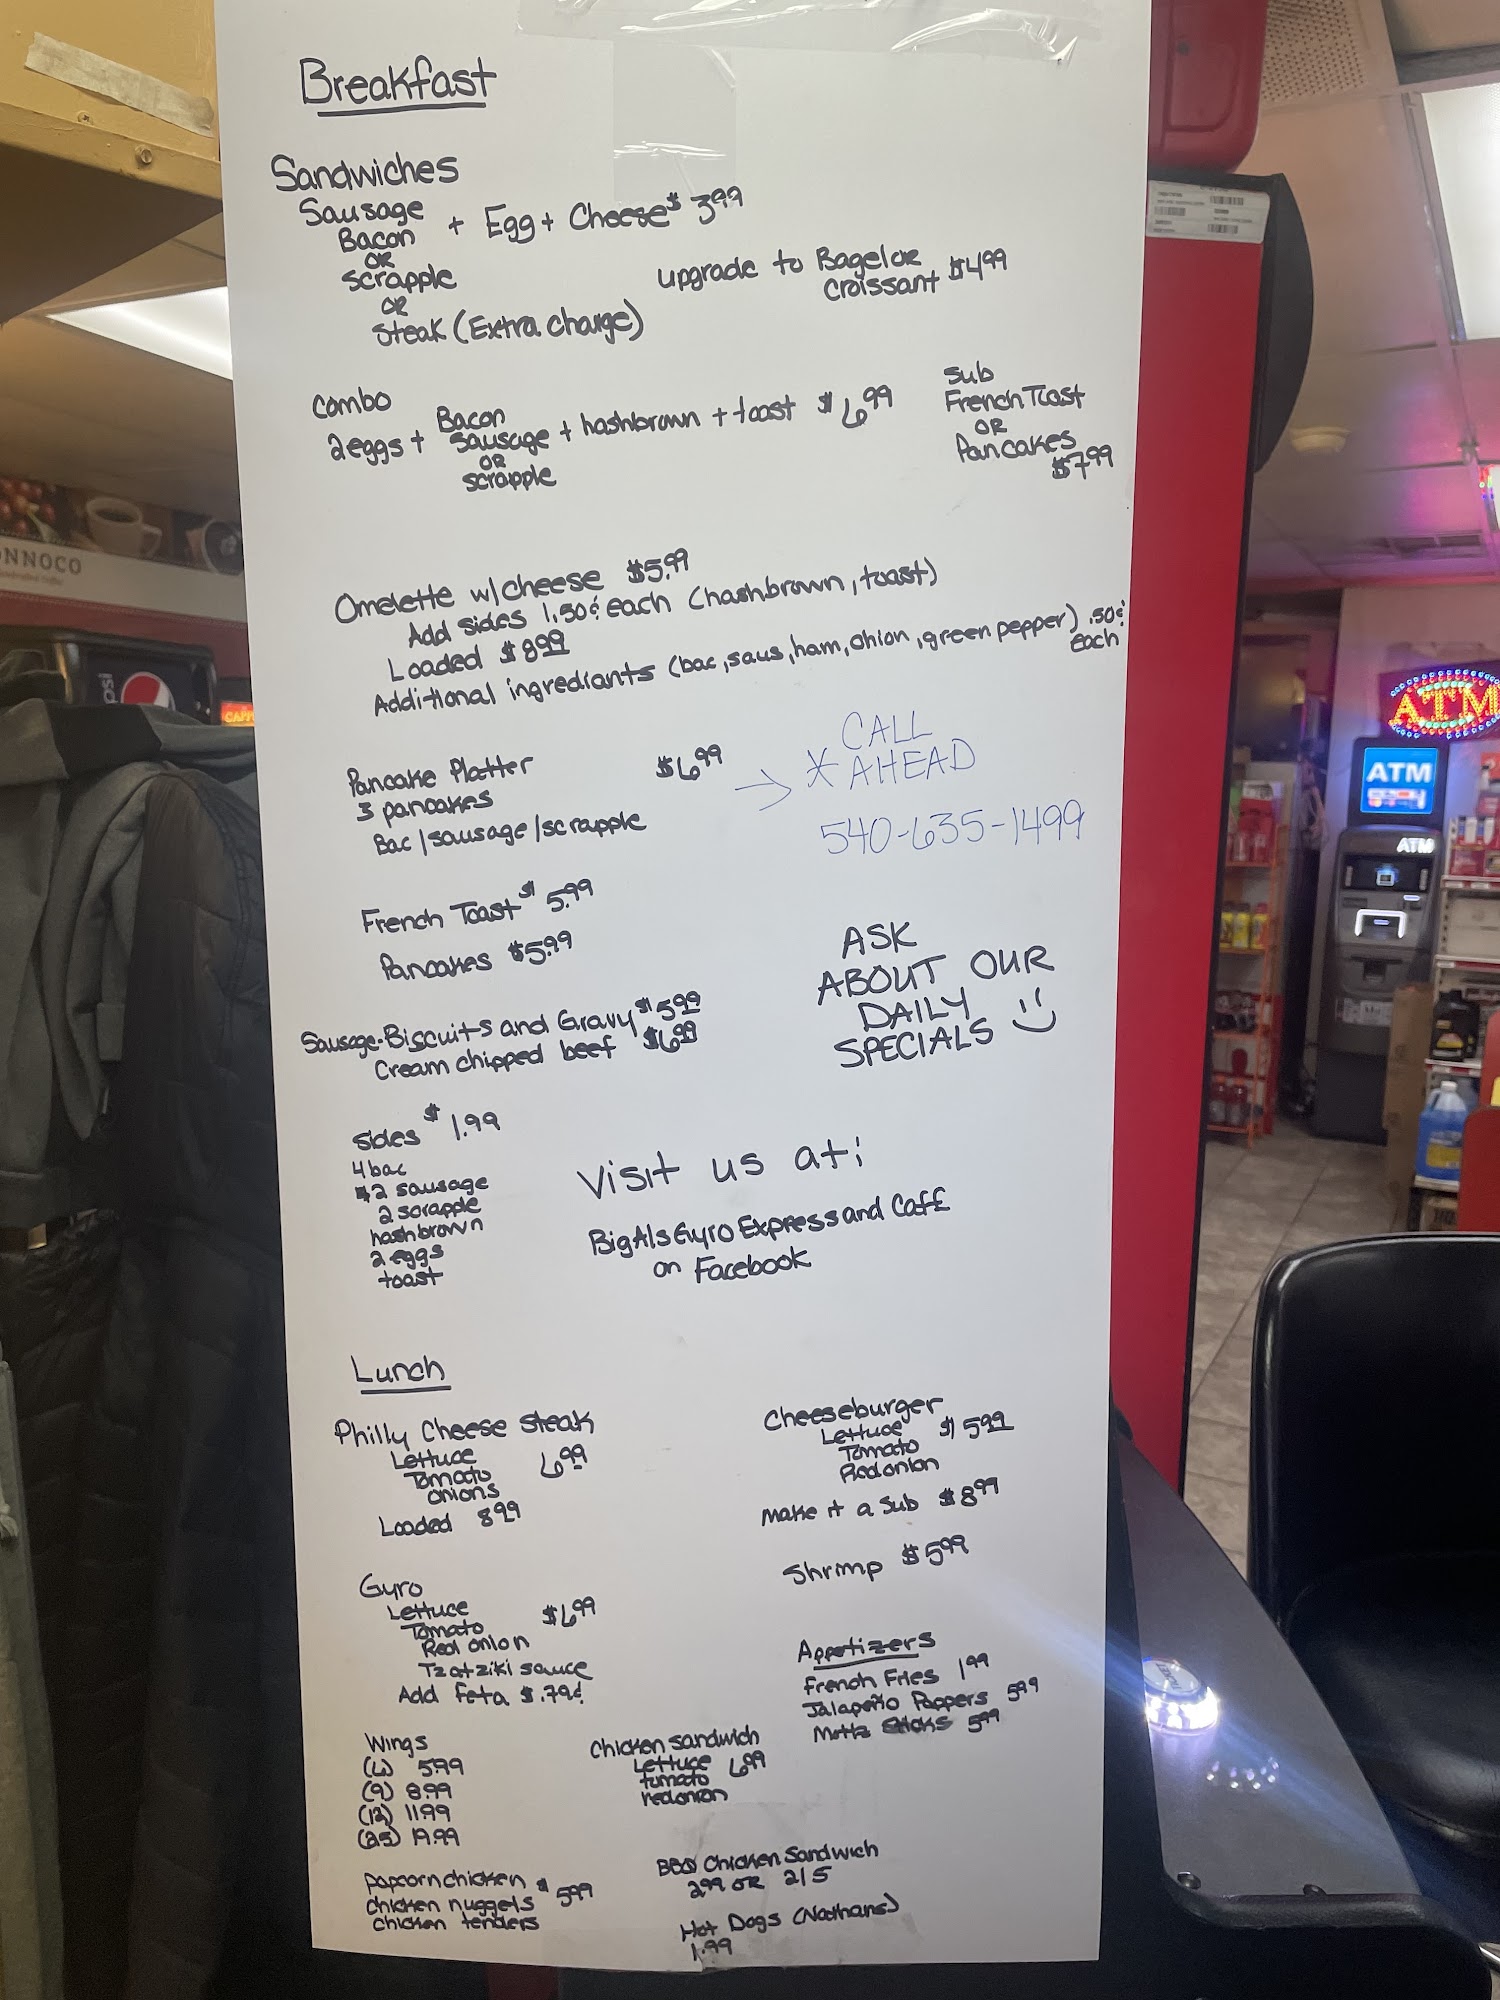 Breakfast
Sandwiches
Sausage
Bacon
OR
Scrapple
OR
Steak (Extra charge)
+ Egg + Cheese $3.99
upgrade to Bagel OR
Croissant $4.99
Combo
2 eggs +
Bacon
Sausage
OR
scrapple
+ hashbrown + toast $6.99
Sub
French Toast
OR
Pancakes
$7.99
Omelette w/cheese $5.99
Add sides 1.50¢ each (hashbrown, toast)
Loaded $8.99
Additional ingrediants (bac, saus, ham, onion, green pepper) .50¢
each
Pancake Platter $6.99
3 pancakes
Bac/sausage/scrapple
→ * CALL
AHEAD
540-635-1499
French Toast $5.99
Pancakes $5.99
ASK
ABOUT OUR
DAILY
SPECIALS
Sausage-Biscuits and Gravy $5.99
Cream chipped beef $6.99
Sides $1.99
4 bac
2 sausage
2 scrapple
hashbrown
2 eggs
toast
Visit us at:
BigAlsGyro Express and Café
on Facebook
Lunch
Philly Cheese Steak
Lettuce
Tomato
onions
6.99
Loaded 8.99
Cheeseburger
Lettuce
Tomato
Red onion
$5.99
make it a Sub $8.99
Shrimp $5.99
Gyro
Lettuce
Tomato
Red onion
Tzatziki sauce
$6.99
Add feta $.79¢
Appetizers
French Fries 1.99
Jalapeño Poppers 5.99
Motz Sticks 5.99
Wings
(6) 5.99
(9) 8.99
(12) 11.99
(25) 19.99
Chicken Sandwich
Lettuce
tomato
red onion
6.99
popcorn chicken
chicken nuggets
chicken tenders
$5.99
BBQ Chicken Sandwich
2.99 OR 2/5
Hot Dogs (Nathans)
1.99
ONNOCO
pepsi
ATM
ATM
ATM